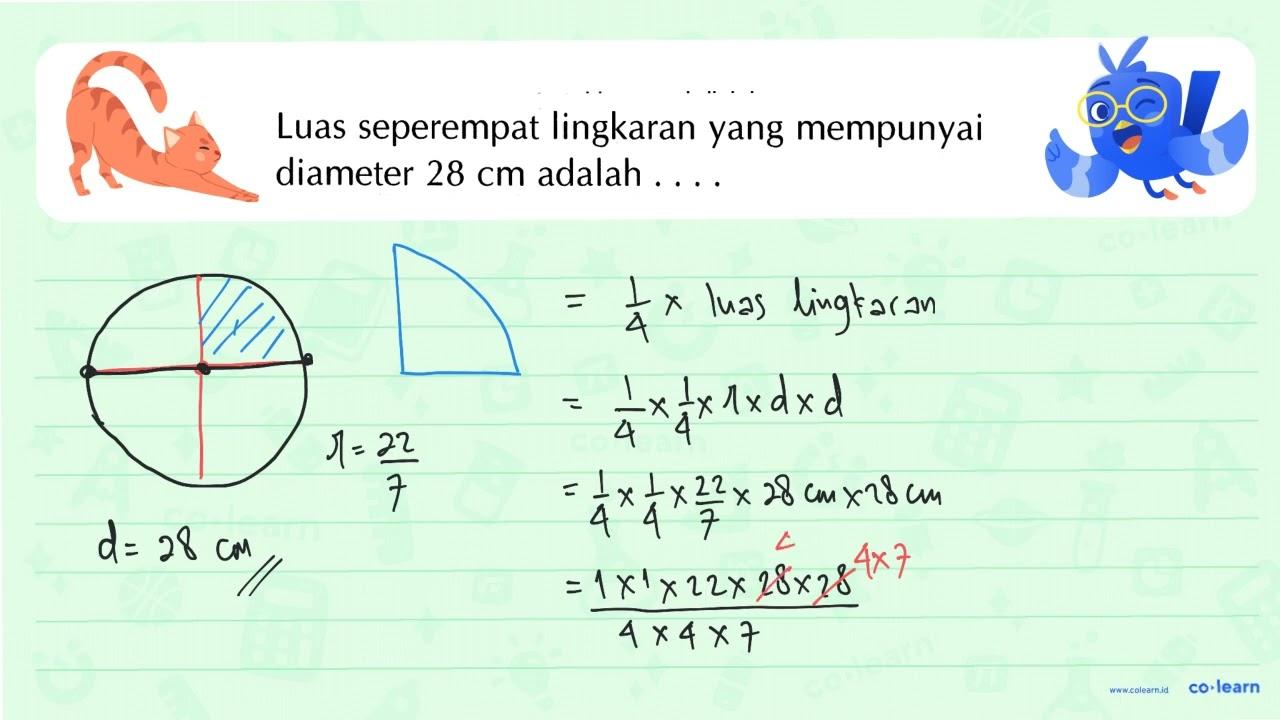 Luas seperempat lingkaran yang mempunyai
diameter 28 cm adalah . . . .
= 1/4 × luas lingkaran
= 1/4 × 1/4 × π × d × d
π = 22/7
= 1/4 × 1/4 × 22/7 × 28 cm × 28 cm
d = 28 cm
4 × 7
= 1 × 1 × 22 × 28 × 28
4 × 4 × 7
www.colearn.id co·learn